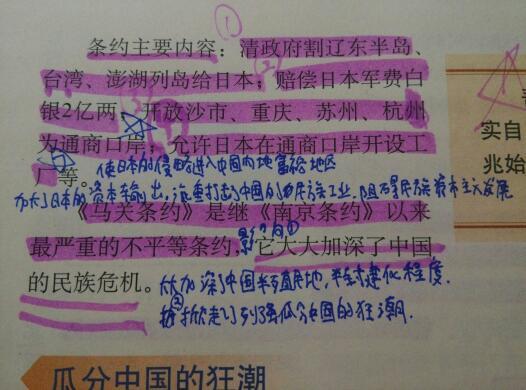 条约主要内容：清政府割辽东半岛、
台湾、澎湖列岛给日本；赔偿日本军费白
银2亿两、开放沙市、重庆、苏州、杭州
为通商口岸；允许日本在通商口岸开设工
厂等。使日本的侵略进入中国内地富裕地区
加大了日本的资本输出，严重打击了中国的民族工业，阻碍民族资本主义发展
《马关条约》是继《南京条约》以来
最严重的不平等条约，它大大加深了中国
的民族危机。大大加深了中国半殖民地，半封建化程度.
掀起了列强瓜分中国的狂潮.
瓜分中国的狂潮
实自
兆始